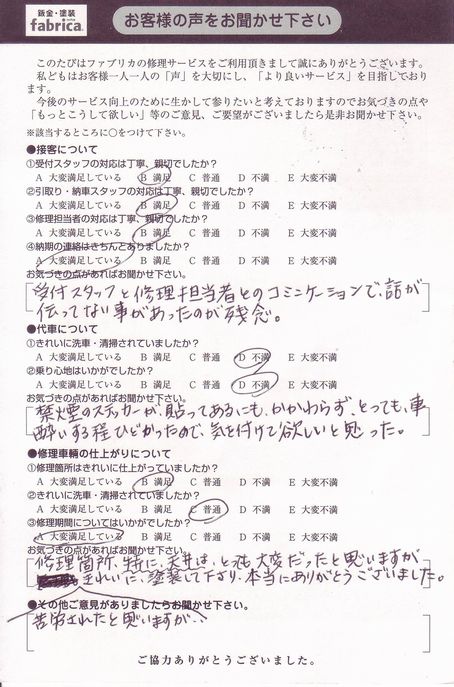 鈑金・塗装
fabrica.
お客様の声をお聞かせ下さい
このたびはファブリカの修理サービスをご利用頂きまして誠にありがとうございます。
私どもはお客様一人一人の「声」を大切にし、「より良いサービス」を目指しており
ます。
今後のサービス向上のために生かして参りたいと考えておりますのでお気づきの点や
「もっとこうして欲しい」等のご意見、ご要望がございましたら是非お聞かせ下さい。
※該当するところに○をつけて下さい。
●接客について
①受付スタッフの対応は丁寧、親切でしたか?
A 大変満足している B 満足 C 普通 D 不満 E 大変不満
②引取り・納車スタッフの対応は丁寧、親切でしたか?
A 大変満足している B 満足 C 普通 D 不満 E 大変不満
③修理担当者の対応は丁寧、親切でしたか?
A 大変満足している B 満足 C 普通 D 不満 E 大変不満
④納期の連絡はきちんとありましたか?
A 大変満足している B 満足 C 普通 D 不満 E 大変不満
お気づきの点があればお聞かせ下さい。
受付スタッフと修理担当者とのコミニケーションで、話が
伝ってない事があったのが残念。
●代車について
①きれいに洗車・清掃されていましたか?
A 大変満足している B 満足 C 普通 D 不満 E 大変不満
②乗り心地はいかがでしたか?
A 大変満足している B 満足 C 普通 D 不満 E 大変不満
お気づきの点があればお聞かせ下さい。
禁煙のステッカーが、貼ってあるにも、かかわらず、とっても、車
酔いする程ひどかったので、気を付けて欲しいと思った。
●修理車輛の仕上がりについて
①修理箇所はきれいに仕上がっていましたか?
A 大変満足している B 満足 C 普通 D 不満 E 大変不満
②きれいに洗車・清掃されていましたか?
A 大変満足している B 満足 C 普通 D 不満 E 大変不満
③修理期間についてはいかがでしたか?
A 大変満足している B 満足 C 普通 D 不満 E 大変不満
お気づきの点があればお聞かせ下さい。
修理箇所、特に、天井は、とても大変だったと思いますが
きれいに、塗装して下さり、本当にありがとうございました。
●その他ご意見がありましたらお聞かせ下さい。
苦労されたと思いますが、
ご協力ありがとうございました。